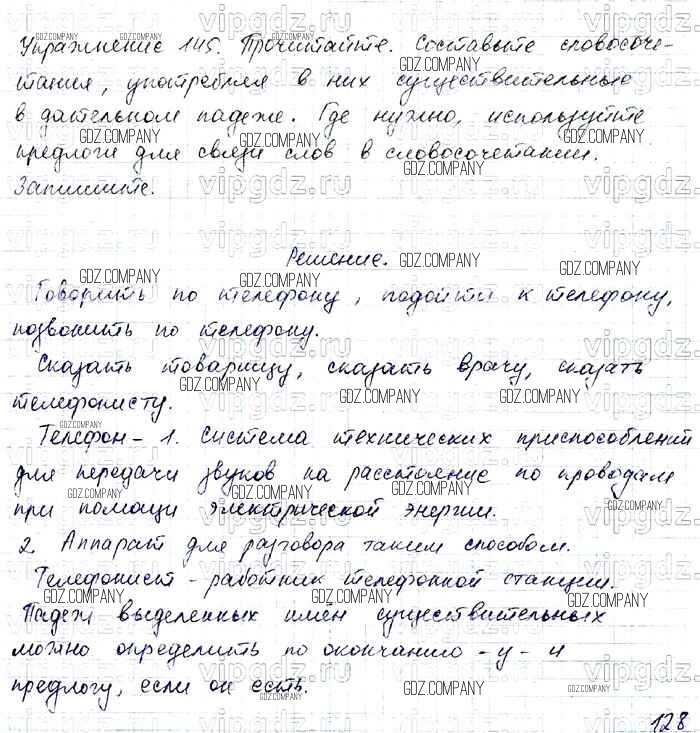 Упражнение 145. Прочитайте. Составьте словосоче-
тания, употребляя в них существительные
в дательном падеже. Где нужно, используйте
предлоги для связи слов в словосочетании.
Запишите.
Решение.
Говорить по телефону, подойти к телефону,
позвонить по телефону.
Сказать товарищу, сказать врачу, сказать
телефонисту.
Телефон - 1. Система технических приспособлений
для передачи звуков на расстояние по проводам
при помощи электрической энергии.
2. Аппарат для разговора таким способом.
Телефонист - работник телефонной станции.
Падеж выделенных имён существительных
можно определить по окончанию -у- и
предлогу, если он есть.
128
vipgdz.ru
GDZ.COMPANY